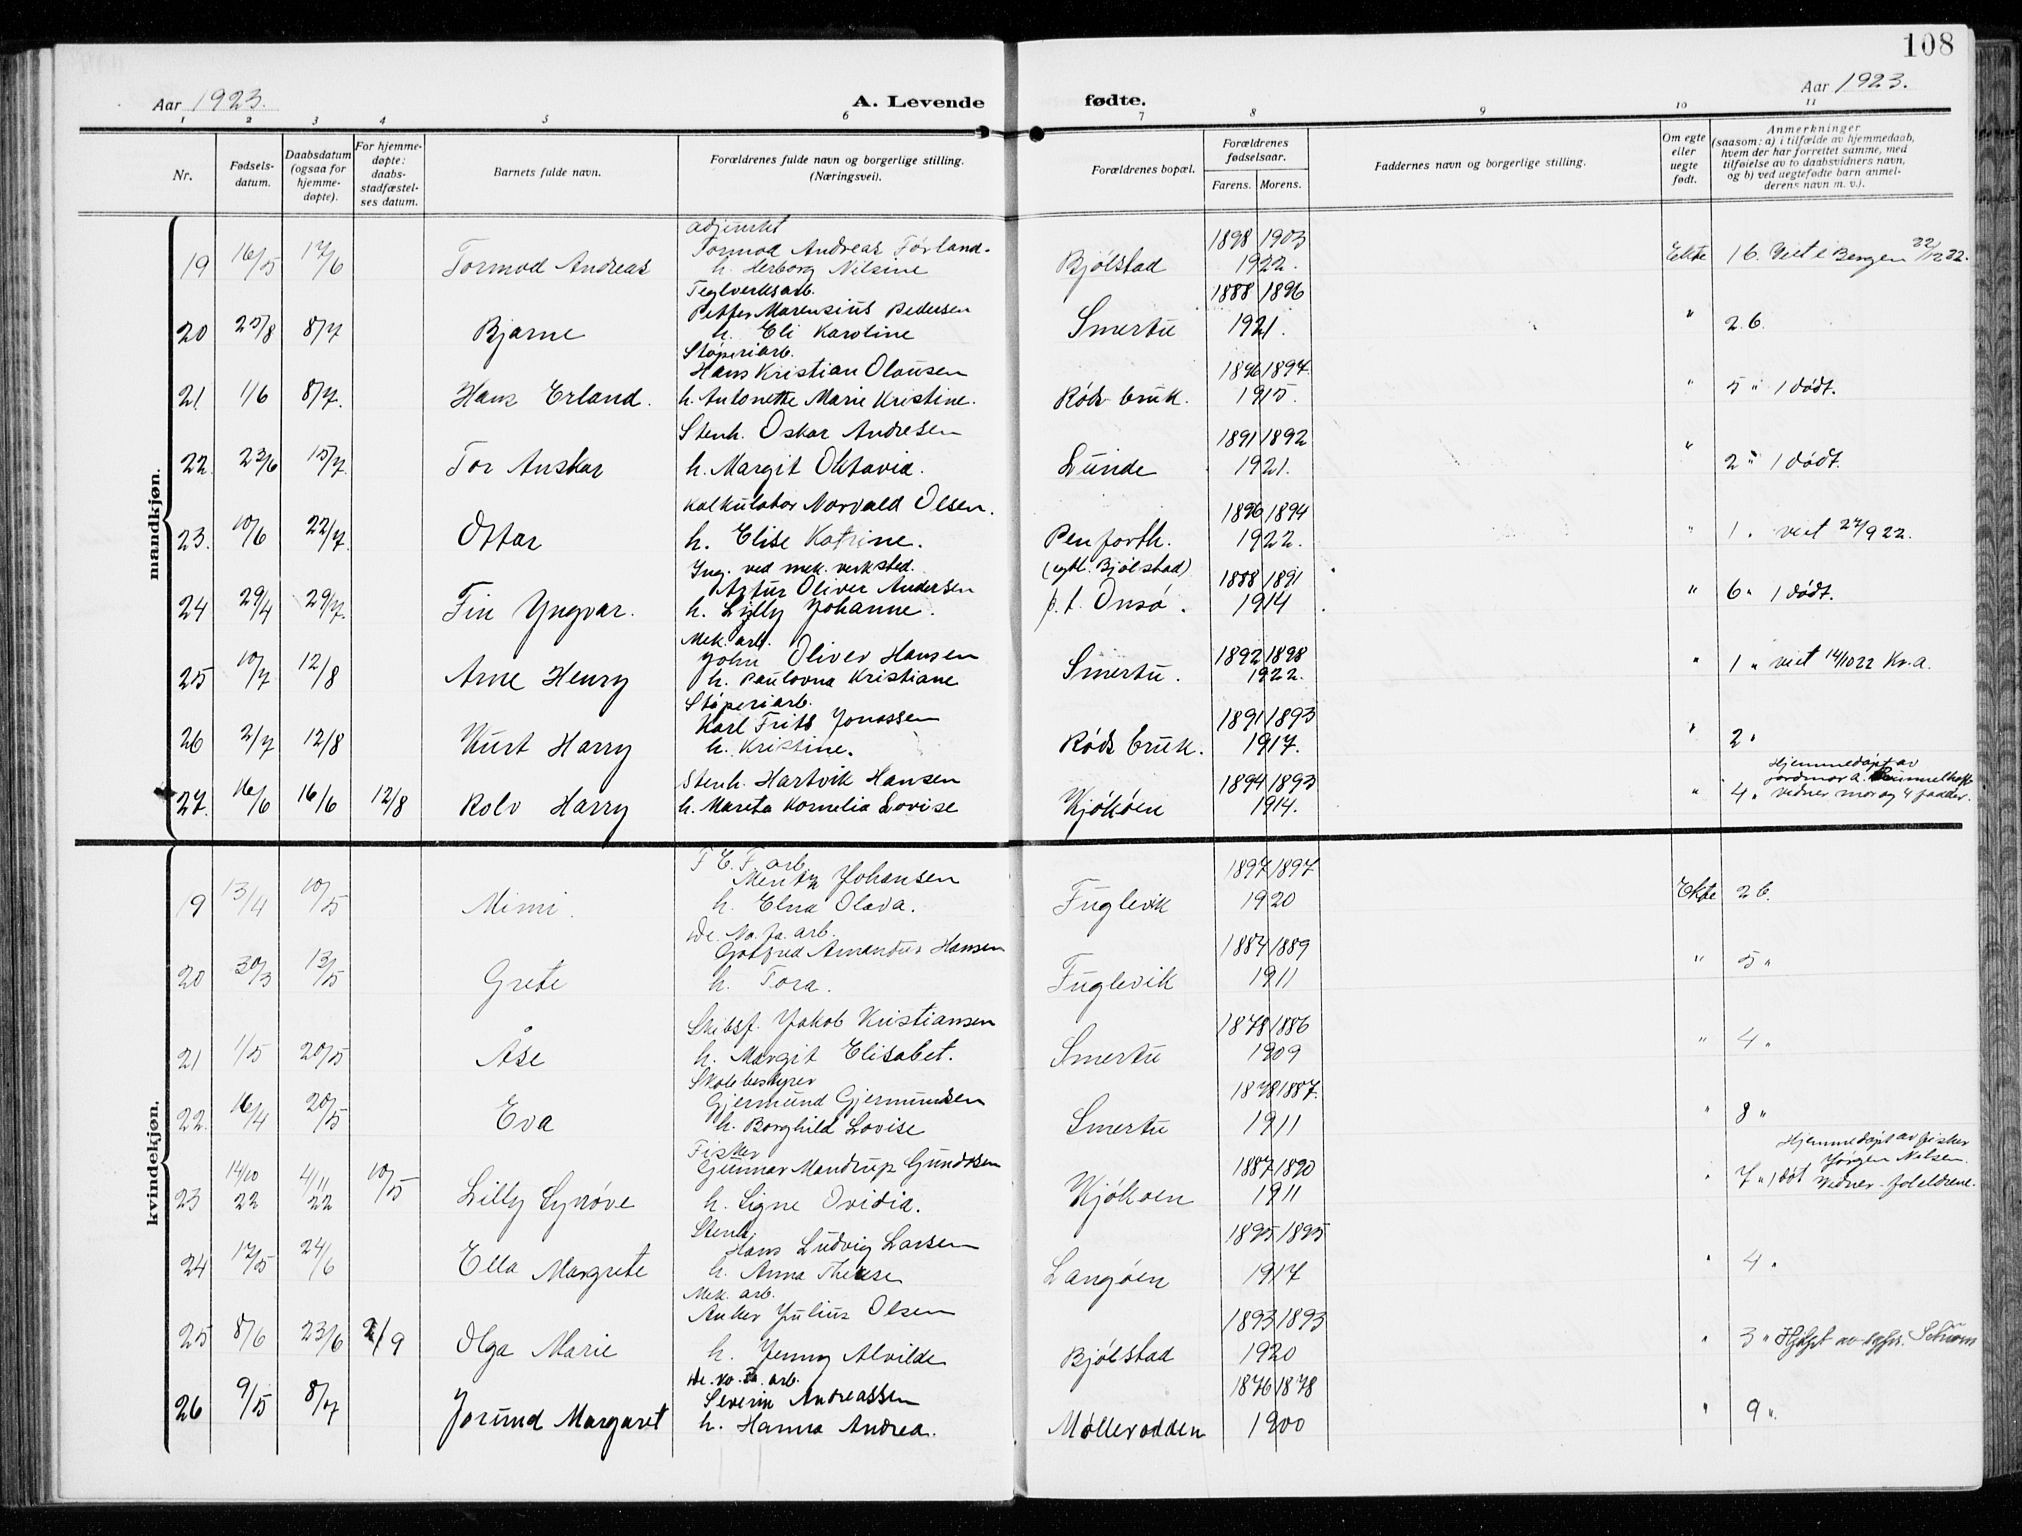 108
Aar 1923. A. Levende fødte. Aar 1923.
1 2 3 4 5 6 7 8 9 10 11
Nr.
Fødsels-
datum.
Daabsdatum
(ogsaa for
hjemme-
døpte).
For hjemme-
døpte:
daabs-
stadfæstel-
ses datum.
Barnets fulde navn.
Forældrenes fulde navn og borgerlige stilling.
(Næringsvei).
Forældrenes bopæl.
Forældrenes
fødselsaar.
Farens. Morens.
Faddernes navn og borgerlige stilling.
Om egte
eller
uegte
født.
Anmerkninger
(saasom: a) i tilfælde av hjemmedaab,
hvem der har forrettet samme, med
tilføielse av to daabsvidners navn,
og b) ved uegtefødte barn anmel-
derens navn m. v.).
mandkjøn.
adjunkt
Tormod Andreas Førland. 1898 1903
19 16/5 17/6 Tormod Andreas h. Herborg Nilsine Bjølstad 1922. Ekte 1 b. Viet i Bergen 22/12 22.
Teglverksarb.
Petter Marensius Pedersen 1888 1896
20 25/8 8/7 Bjarne h. Eli Karoline Smertu 1921. " 2 b.
Støperiarb.
Hans Kristian Olausen 1896 1894
21 1/6 8/7. Hans Erland. h. Antonette Marie Kristine. Røds bruk. 1915. " 5 " 1 dødt.
Stenh. Oskar Andresen 1891 1892
22. 23/6 15/7 Tor Anskar h. Margit Oktavia. Lunde 1921. " 2 " 1 dødt.
Kalkulator Norvald Olsen. 1896 1894
23. 10/6 22/7. Ottar h. Elise Katrine. Penforth. 1922. " 1 " viet 27/9 22.
Ing. ved mek. verksted. (egtl. Bjølstad)
Artur Oliver Andersen 1888 1891
24 29/4 29/7. Fin Yngvar. h. Lilly Johanne. p.t. Onsø. 1914 " 6 " 1 dødt.
Mek. arb.
John Oliver Hansen 1892 1898
25 10/7 12/8 Arne Henry h. Paulovna Kristiane Smertu. 1922. " 1 " viet 14/10 22 Kr.a.
Støperiarb.
Karl Frits Jonassen 1891 1893
26 2/7 12/8 Kurt Harry h. Kristine. Røds bruk. 1917. " 2 "
Hjemmedøpt av
Stenh. Hartvik Hansen 1894 1893 jordmor A.
27. 16/6 16/6 12/8 Rolv Harry h. Marita Kornelia Lovise Kjøkøen 1914. " 4 " vidner mor og 4 fadder.
kvindekjøn.
T. E. F. arb.
Johansen 1897 1897
19 13/4 10/5 Mimi. h. Elna Olava. Fuglevik 1920 Ekte 2 b.
De. No. fa. arb.
Gotfred Amandus Hansen 1884 1889
20 30/3 13/5 Grete h. Tora. Fuglevik 1911 " 5 "
Skibsf. Jakob Kristiansen 1878 1886
21 1/5 20/5 Åse h. Margit Elisabet. Smertu 1909 " 4 "
Skolebestyrer
Gjermund Gjermundsen 1878 1887.
22. 16/4 20/5 Eva h. Borghild Lovise Smertu 1911 " 8 "
Fisker Hjemmedøpt av fisker
Gunnar Mandrup Gundersen 1887 1890 Jørgen Nilsen.
23 14/10 22 4/11 22 10/5 Lilly Synøve h. Signe Ovidia. Kjøkøen 1911 " 7 " 1 døt Vidner - foreldrene.
Stenh.
Hans Ludvig Larsen 1895 1895
24 17/5 24/6 Ella Margrete h. Anna Therese Langøen 1917 " 4 "
Mek. arb.
Anker Julius Olsen 1893 1893
25 8/6 23/6 2/9 Olga Marie h. Jenny Alvilde Bjølstad 1920 " 3 "
De. No. fa. arb.
Severin Andreassen 1876 1878
26 9/5 8/7 Jorund Margaret h. Hanna Andrea. Møllerodden 1900 " 9 "